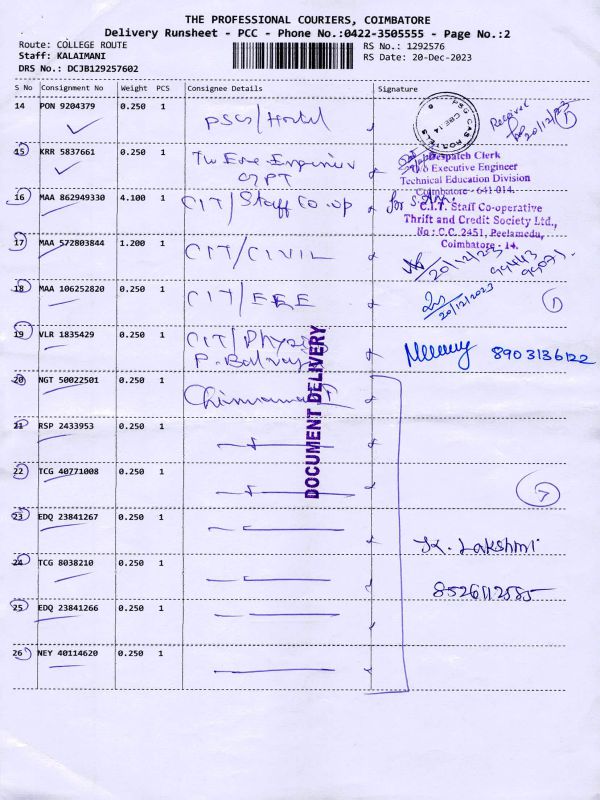 THE PROFESSIONAL COURIERS, COIMBATORE
Delivery Runsheet - PCC - Phone No.:0422-3505555 - Page No.:2
Route: COLLEGE ROUTE
RS No.: 1292576
Staff: KALAIMANI
RS Date: 20-Dec-2023
DRS No.: DCJB129257602
S No Consignment No Weight PCS Consignee Details Signature
14 PON 9204379 0.250 1
Received
20/12/23
PSG CAS HOSTELS
CBE 14
15 KRR 5837661 0.250 1 The Exe Engineer
GPT
Despatch Clerk
O/o Executive Engineer
Technical Education Division
Coimbatore - 641 014.
16 MAA 862949330 4.100 1 CIT/Staff Co-op for
C.I.T. Staff Co-operative
Thrift and Credit Society Ltd.,
No : C.C. 2451, Peelamedu,
Coimbatore - 14.
17 MAA 572803844 1.200 1 CIT/CIVIL
20/12/23
18 MAA 106252820 0.250 1 CIT/EEE
20/12/2023
1
19 VLR 1835429 0.250 1 CIT/Physics
8903136122
20 NGT 50022501 0.250 1
DOCUMENT DELIVERY
21 RSP 2433953 0.250 1
22 TCG 40771008 0.250 1
7
23 EDQ 23841267 0.250 1
K. Lakshmi
24 TCG 8038210 0.250 1
25 EDQ 23841266 0.250 1
26 NEY 40114620 0.250 1